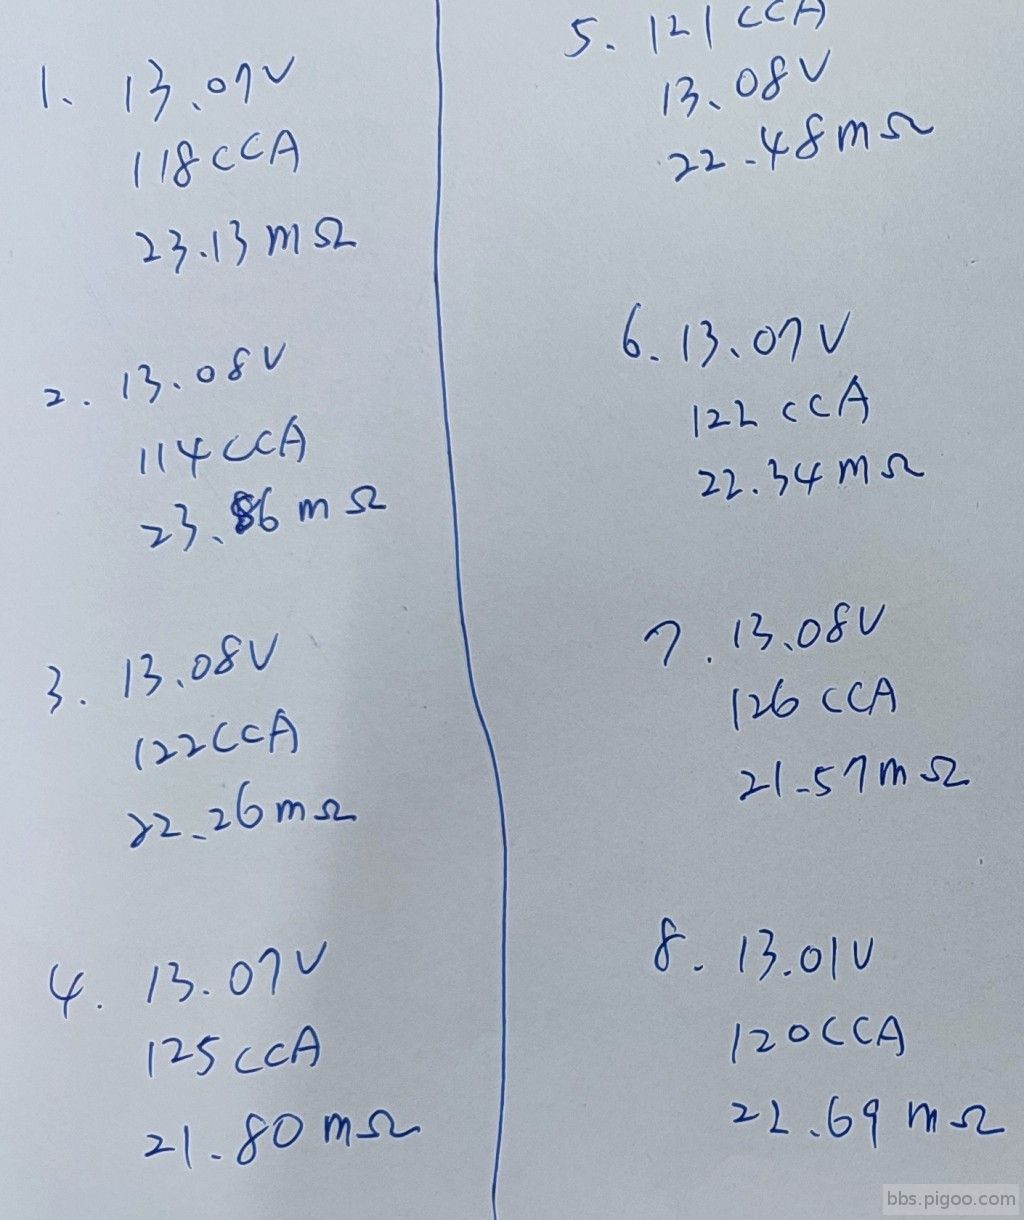 1. 13.07V
118CCA
23.13mΩ
2. 13.08V
114CCA
23.86mΩ
3. 13.08V
122CCA
22.26mΩ
4. 13.07V
125CCA
21.80mΩ
5. 121CCA
13.08V
22.48mΩ
6. 13.07V
122CCA
22.34mΩ
7. 13.08V
126CCA
21.57mΩ
8. 13.01V
120CCA
22.69mΩ
bbs.pigoo.com